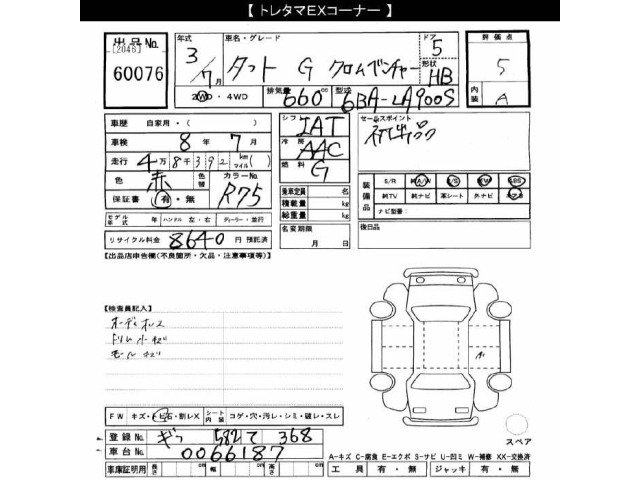 【 トレタマEXコーナー 】
出品No. 年式 車名・グレード ドア 評価点
[2046] 3 タント G クロムベンチャー 5 5
60076 7月 形状 HB
2WD・4WD 排気量 660 cc 型式 6BA-LA900S 内装 A
車歴 自家用・( ) シフト IAT セールスポイント
車検 8年 7月 冷房 AAC 初出品
走行 4万8千392 km マイル ( ) 燃料 G
色 赤 色替 カラーNo. R75
保証書 有・無
乗車定員 名
積載量 kg
総重量 kg
装備品 S/R 純A/W P/S P/W ABS
純TV 純ナビ 革シート 外ナビ エアB
ナビ型番:
モデル年式 年 ハンドル 左・右 ディーラー・並行
名変期限 月 日
後日品
リサイクル料金 8640 円 預託済
【出品店申告欄(不良箇所・欠品・注意事項等)】
【検査員記入】
オーディオレス
ドリンクホルダー
モール キズ
FW キズ・ヒ石・割レX シート内装 コゲ・穴・汚レ・シミ・破レ・スレ
登録No. 582 て 368
車台No. 0066187
スペア
A-キズ C-腐食 E-エクボ S-サビ U-凹ミ W-補修 XX-交換済
車庫証明用 長さ cm 幅 cm 高さ cm 工具 有・無 ジャッキ 有・無